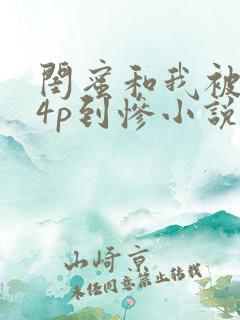 閨蜜和我被
4p到慘小說
山崎京
未经同意禁止转载